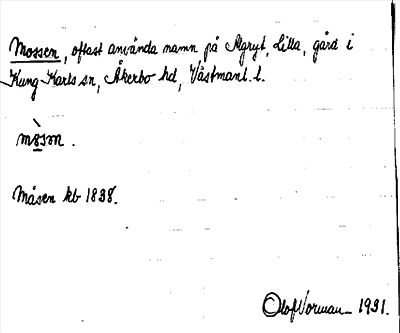 Mossen, oftast använda namn på Älgryt, Lilla, gård i
Kung Karls sn, Åkerbo hd, Västmanl. l.
mòsɔn.
Måsen kb 1838.
Olof Norman 1931.